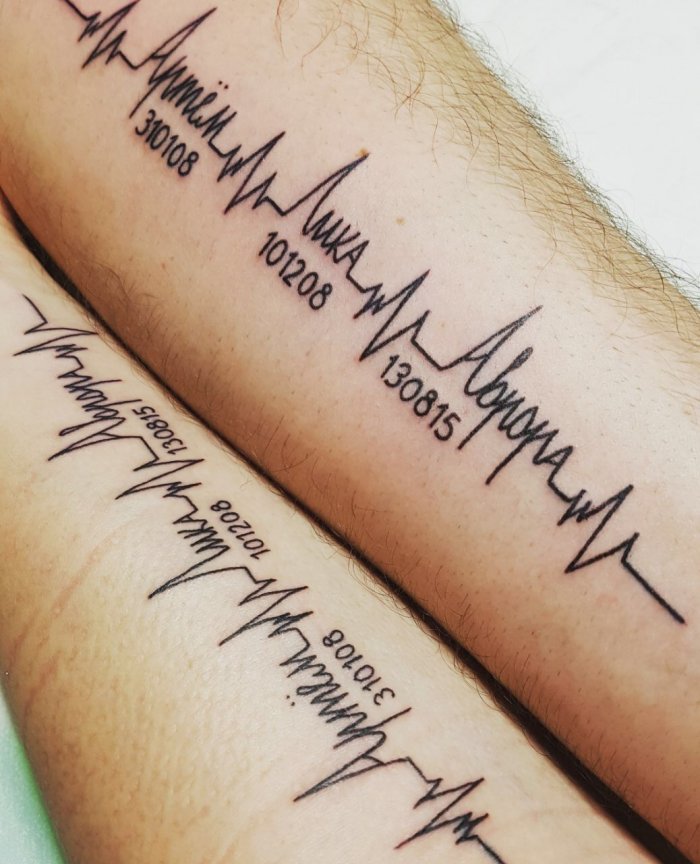 Артём
310108
Лика
101208
Аврора
130815
Аврора
130815
Лика
101208
Артём
310108